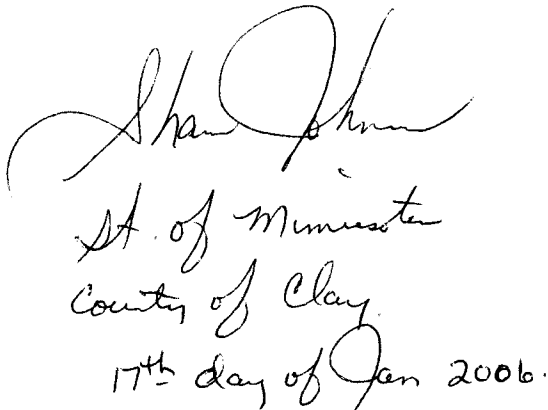 Shawn Johnson
St. of Minnesota
County of Clay.
17th day of Jan 2006.